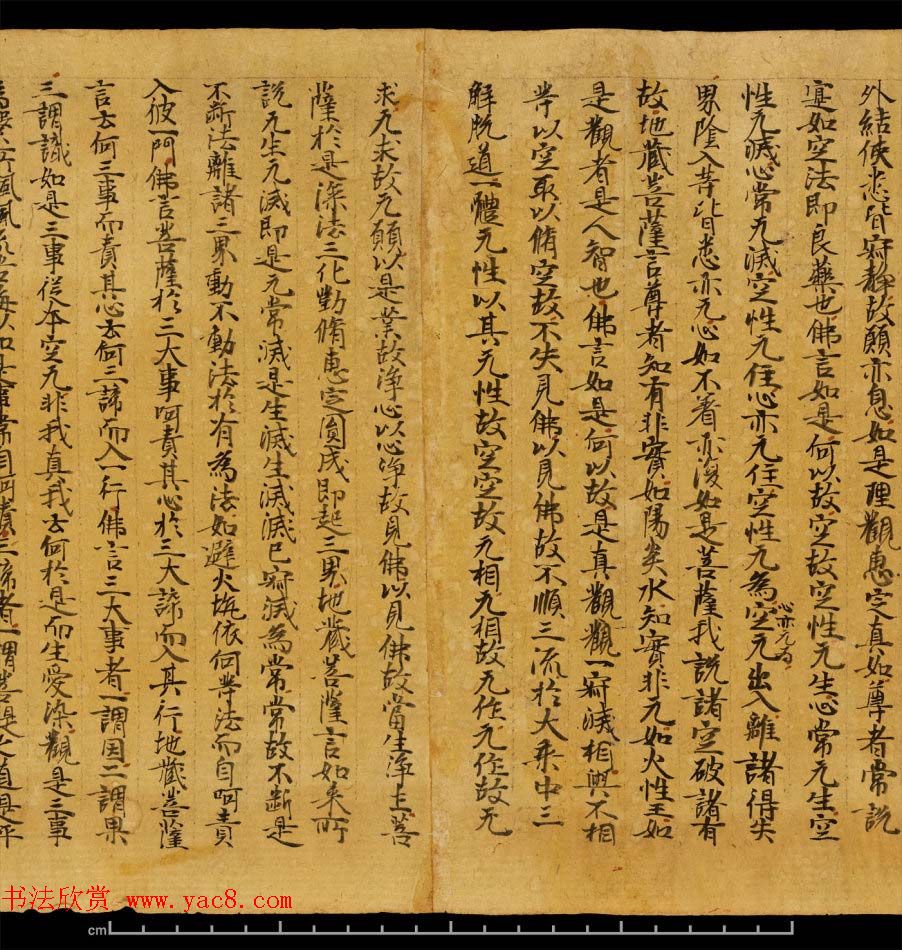 外結使悉皆寂静故願亦息如是理觀惠定真如尊者常説
寔如空法即良藥也佛言如是何以故空故空性无生心常无生空
性无滅心常无滅空性无住心亦无住空性无為空无出入離諸得失
心亦无為
界陰入等皆悉亦无心如不著亦復如是菩薩我説諸空破諸有
故地藏菩薩言尊者知有非實如陽炎水知實非无如火性王如
是觀者是人智也佛言如是何以故是真觀觀一寂滅相與不相
等以空取以脩空故不失見佛以見佛故不順三流於大乘中三
解脱道一體无性以其无性故空空故无相无相故无作无作故无
求无求故无願以是業故浄心以心浄故見佛以見佛故當生浄土菩
薩於是深法三化勤脩惠定圓成即超三界地藏菩薩言如来所
説无生无滅即是无常滅是生滅生滅滅已寂滅為常常故不断是
不断法離諸三界動不動法於有為法如避火坑依何等法而自呵責
入彼一門佛言菩薩於三大事呵責其心於三大諦而入其行地藏菩薩
言云何三事而責其心云何三諦而入一行佛言三大事者一謂因二謂果
三謂識如是三事從本空无非我真我云何於是而生愛染觀是三事
書法欣赏 www.yac8.com
cm